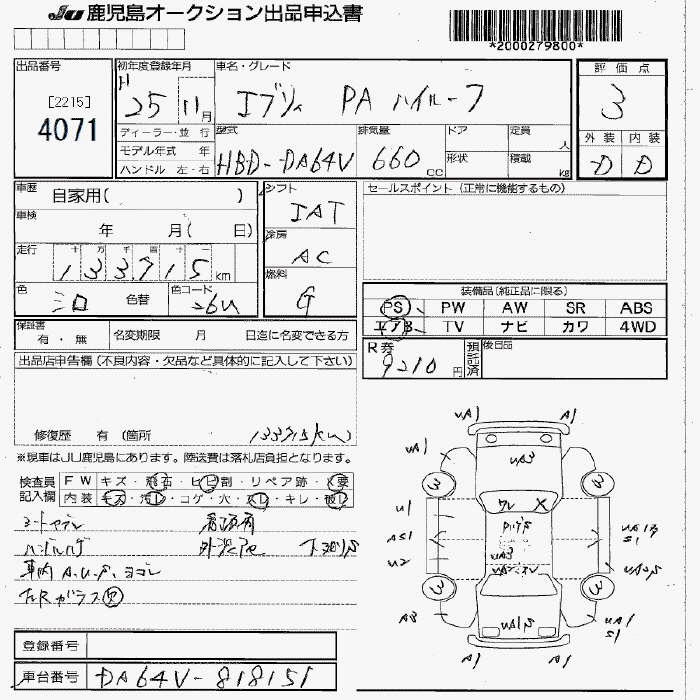 JU 鹿児島オークション出品申込書
*2000279800*
出品番号
[2215]
4071
初年度登録年月
H
25 11月
車名・グレード
エブリィ PA ハイルーフ
評価点
3
外装 内装
D D
ディーラー・並 行
モデル年式 年
ハンドル 左・右
型式
HBD-DA64V
排気量
660 cc
ドア
形状
定員
人
積載
kg
車歴
自家用( )
車検
年 月( 日)
走行
十 万 千 百 十 一
133715 km
色
色替
色コード
26U
シフト
IAT
冷房
AC
燃料
G
セールスポイント (正常に機能するもの)
装備品(純正品に限る)
PS PW AW SR ABS
エアB TV ナビ カワ 4WD
保証書
有・無
名変期限 月 日迄に名変できる方
R券
9210 円
預託済
後日品
出品店申告欄(不良内容・欠品など具体的に記入して下さい)
修復歴 有 (箇所
133715km)
※現車はJU鹿児島にあります。陸送費は落札店負担となります。
検査員
記入欄
FW キズ・飛石・ヒビ割・リペア跡・X要
内装 キズ・汚レ・コゲ・穴・スレ・キレ・被レ
シートヤブレ
ハンドルハゲ
車内 A.U.P. ヨゴレ
左Rガラス欠
UA1 A1
UA1 UA3 A1
3 3
ワレ X
U1
AS1
U2
UA3
S1
3 3
A3
UA1
S1
登録番号
車台番号 DA64V-818151